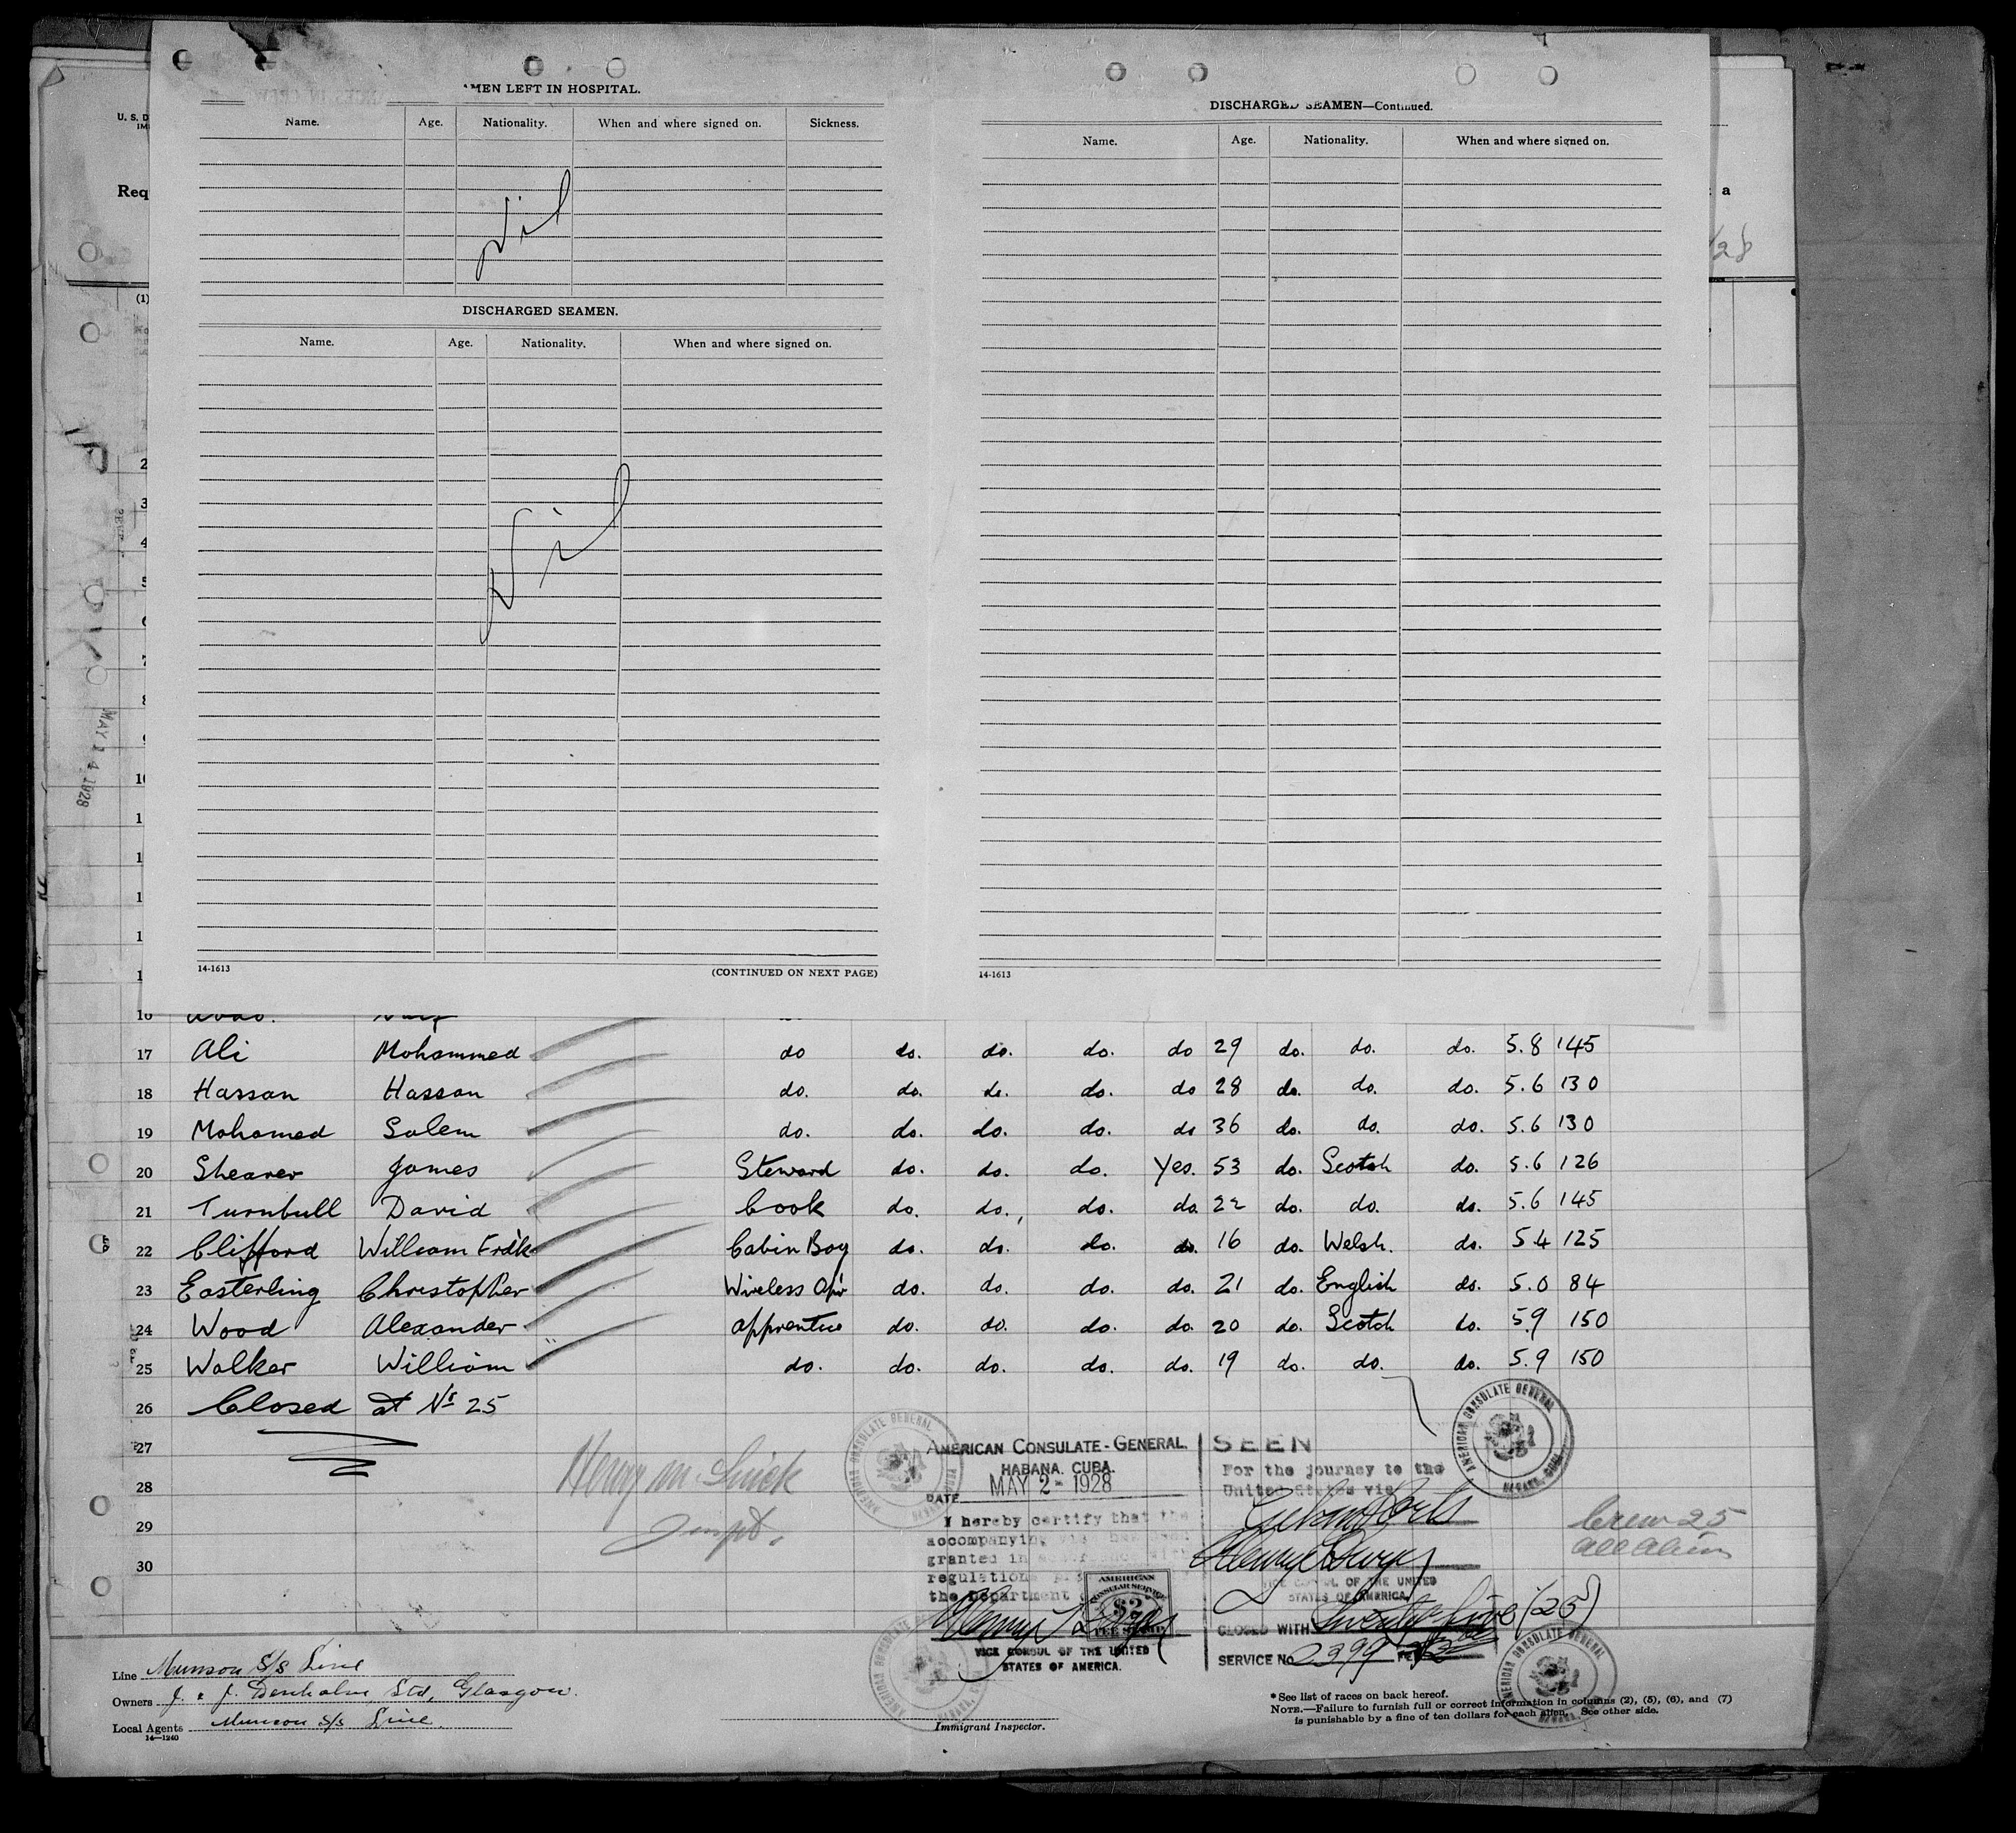 MEN LEFT IN HOSPITAL.
Name. Age. Nationality. When and where signed on. Sickness.
Nil
DISCHARGED SEAMEN.
Name. Age. Nationality. When and where signed on.
Nil
14-1613 (CONTINUED ON NEXT PAGE)
DISCHARGED SEAMEN—Continued.
Name. Age. Nationality. When and where signed on.
14-1613
U. S. D
Req
a
/28
(1)
2
3
4
5
7
8
MAY 14 1928
16
17 Ali Mohammed do do. do. do. do 29 do. do. do. 5.8 145
18 Hassan Hassan do. do. do. do. do 28 do. do. do. 5.6 130
19 Mohamed Salem do. do. do. do. do 36 do. do. do. 5.6 130
20 Shearer James Steward do. do. do. Yes. 53 do. Scotch do. 5.6 126
21 Turnbull David Cook do. do. do. do. 22 do. do. do. 5.6 145
22 Clifford William Frdk Cabin Boy do. do. do. do. 16 do. Welsh. do. 5 4 125
23 Easterling Christopher Wireless Opr do. do. do. do. 21 do. English do. 5.0 84
24 Wood Alexander apprentice do. do. do. do. 20 do. Scotch do. 5.9 150
25 Walker William do. do. do. do. do. 19 do. do. do. 5.9 150
26 Closed at No 25
27
28
29
30
Henry M.
AMERICAN CONSULATE-GENERAL.
HABANA. CUBA.
DATE MAY 2 - 1928
I hereby certify that the
accompanying
granted in
regulations
the Department
AMERICAN CONSULAR SERVICE
$2
FEE STAMP
VICE CONSUL OF THE UNITED
STATES OF AMERICA.
SEEN
For the journey to the
United States via
VICE CONSUL OF THE UNITED
STATES OF AMERICA
CLOSED WITH Twenty five (25)
SERVICE No 2399
AMERICAN CONSULATE GENERAL
HABANA, CUBA
Crew 25
all alien
Line Munson S/s Line
Owners J. & J. Denholm, Ltd, Glasgow.
Local Agents Munson S/s Line.
14—1240
Immigrant Inspector.
*See list of races on back hereof.
NOTE.—Failure to furnish full or correct information in columns (2), (5), (6), and (7)
is punishable by a fine of ten dollars for each alien. See other side.